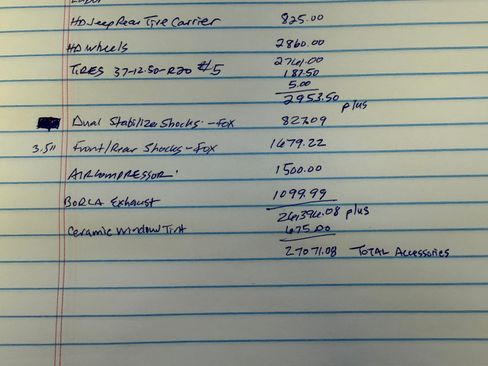 HD Jeep Rear Tire Carrier 825.00
HD Wheels 2860.00
TIRES 37-12.50-R20 #5 2761.00
187.50
5.00
2953.50
plus
Dual Stabilizer Shocks - Fox 827.09
3.5" Front/Rear Shocks - Fox 1679.22
AIR COMPRESSOR 1500.00
BORLA Exhaust 1099.99
26,396.08 plus
Ceramic Window Tint 675.00
27071.08 TOTAL Accessories